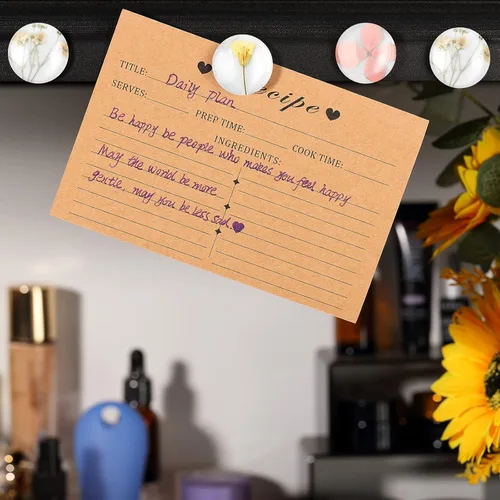 Recipe
TITLE: Daily plan
SERVES: PREP TIME: COOK TIME:
INGREDIENTS:
Be happy be people who makes you feel happy
May the world be more
gentle, may you be less sad.